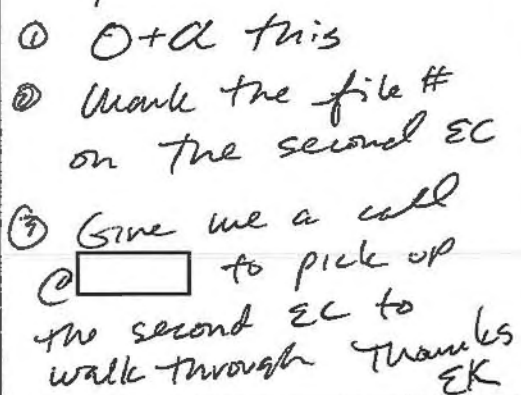 ① O+A this
② Mark the file #
on the second EC
③ Give me a call
@ to pick up
the second EC to
walk through Thanks
EK